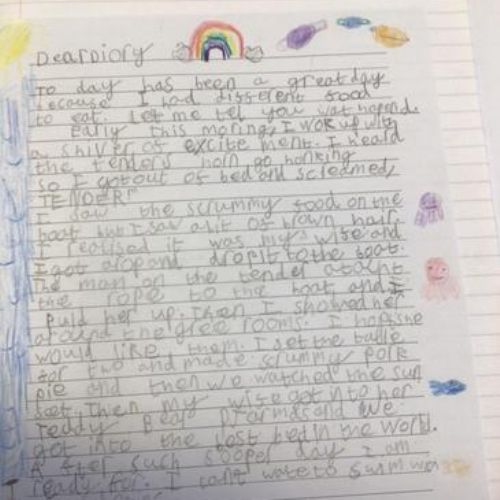 Deardiory
To day has been a great day
because I had different food
to eat. Let me tel you wat hapend.
early this moring, I wok up with
a shiver of excite ment. I heard
the tenders horn go honking
so I got out of bed and screamed,
TENDER!"
I saw the scrummy food on the
boat but I saw a bit of brown hair.
I realised it was my wife and
I got a rop and drop it to the boat.
The man on the tender atacht
the rope to the boat and I
puld her up. Then I showed her
around the rooms. I
would like them. I set the table
for two and made scrummy pork
pie and then we watched the sun
set. Then my wife got into her
teddy bear and we
got into the best bed in the world.
After such sooper day I am
ready for. I cant wate to swim